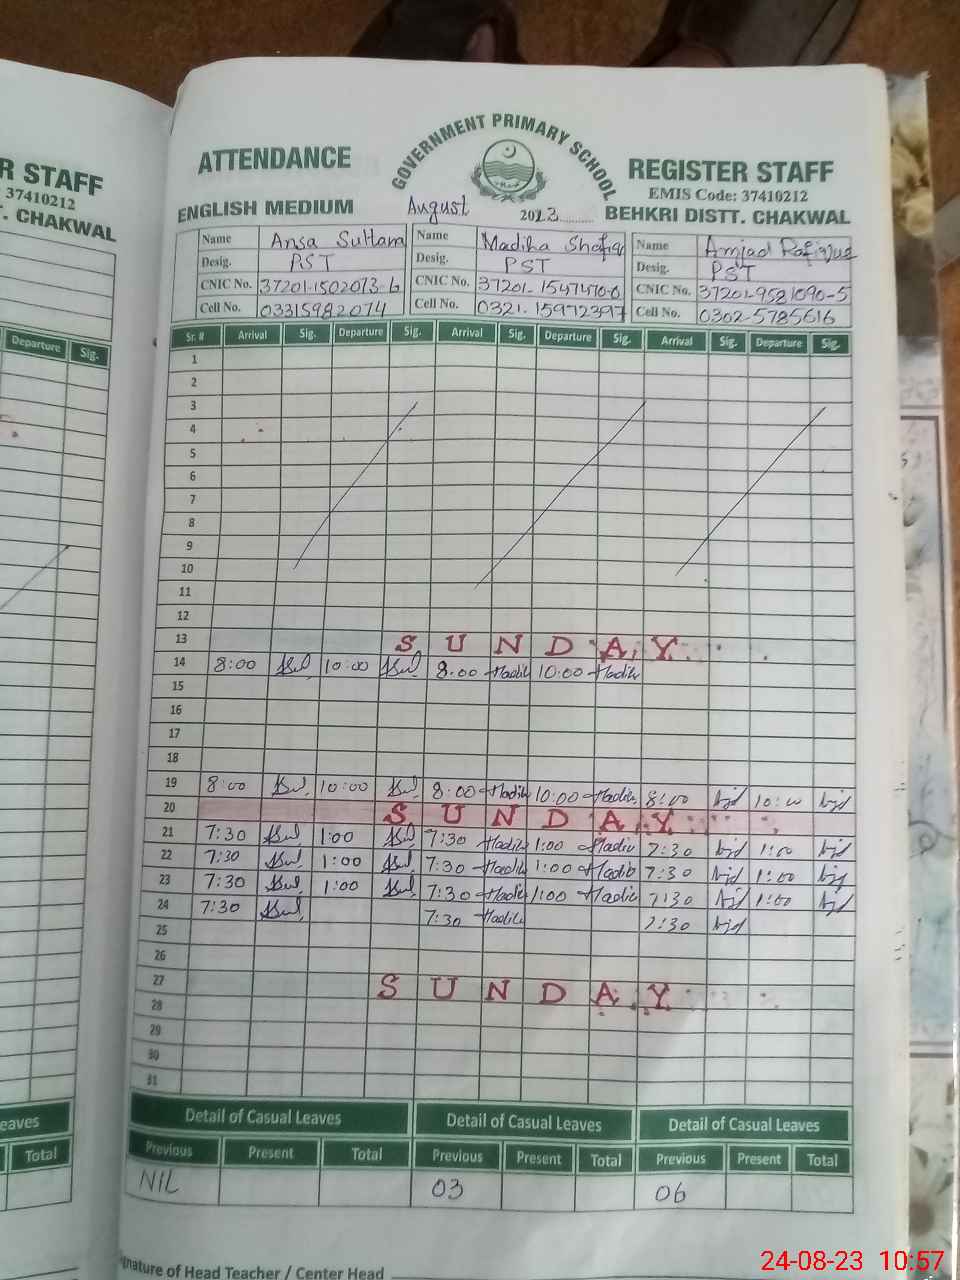 R STAFF
37410212
T. CHAKWAL
Departure Sig.
eaves
Total
GOVERNMENT PRIMARY SCHOOL
ATTENDANCE REGISTER STAFF
EMIS Code: 37410212
ENGLISH MEDIUM August 2023 BEHKRI DISTT. CHAKWAL
Name Ansa Sultana Name Madiha Shafiq Name Amjad Rafique
Desig. PST Desig. PST Desig. PST
CNIC No. 37201-1502073-6 CNIC No. 37201-1547470-0 CNIC No. 37201-9581090-5
Cell No. 03315982074 Cell No. 0321-15972397 Cell No. 0302-5785616
Sr. # Arrival Sig. Departure Sig. Arrival Sig. Departure Sig. Arrival Sig. Departure Sig.
1
2
3
4
5
6
7
8
9
10
11
12
13 SUNDAY
14 8:00 10:00 8:00 Hadih 10:00 Hadih
15
16
17
18
19 8:00 10:00 8:00 Hadih 10:00 Hadih 8:00 10:00
20 SUNDAY
21 7:30 1:00 7:30 Hadih 1:00 Hadih 7:30 1:00
22 7:30 1:00 7:30 Hadih 1:00 Hadih 7:30 1:00
23 7:30 1:00 7:30 Hadih 1:00 Hadih 7:30 1:00
24 7:30 7:30 Hadih 7:30
25
26
27 SUNDAY
28
29
30
31
Detail of Casual Leaves Detail of Casual Leaves Detail of Casual Leaves
Previous Present Total Previous Present Total Previous Present Total
NIL 03 06
nature of Head Teacher / Center Head
24-08-23 10:57